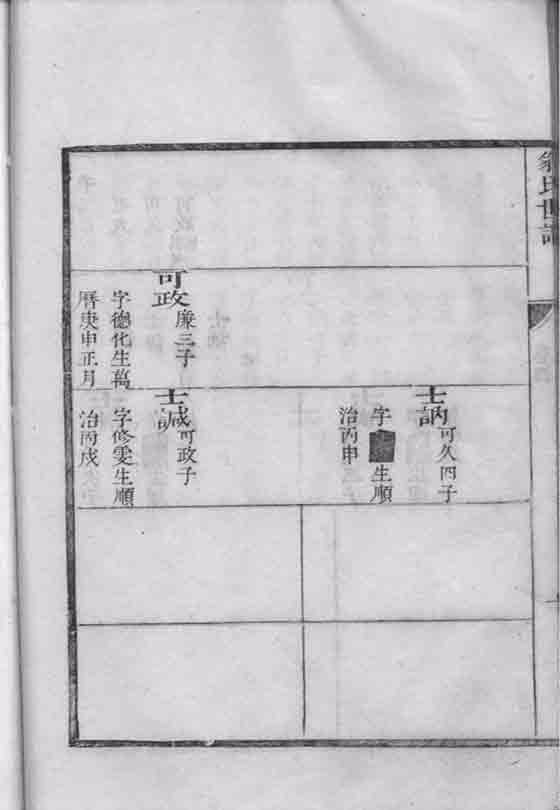 翁氏世譜
可政
廉三子
字德化生萬
曆庚申正月
士訥
可久四子
字
生順
治丙申
士誠
可政子
字修雯生順
治丙戌